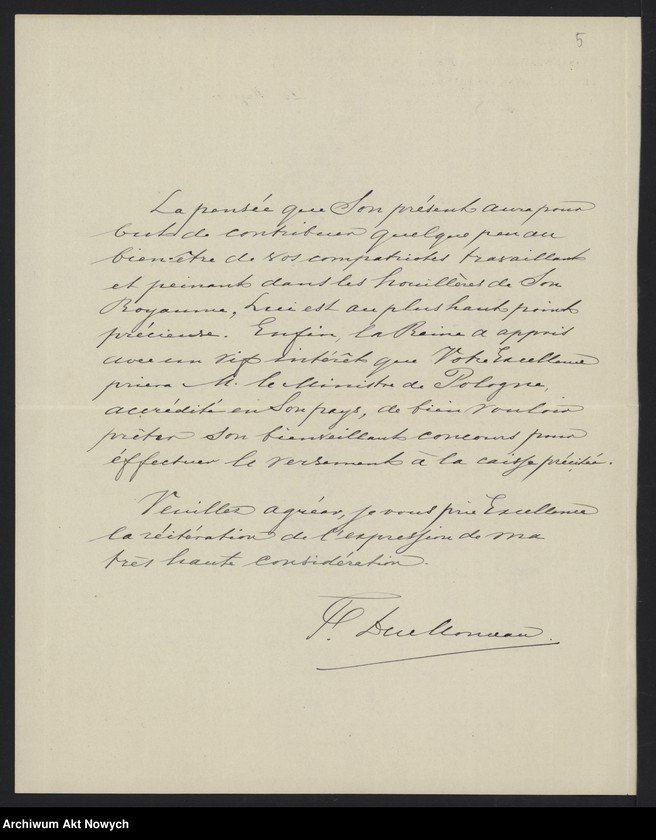 5
La pensée que Son présent aura pour
but de contribuer quelque peu au
bien-être de vos compatriotes travaillant
et peinant dans les houillères de Son
Royaume, Lui est au plus haut point
précieuse. Enfin, la Reine a appris
avec un vif intérêt que Votre Excellence
priera M. le Ministre de Pologne,
accrédité en Son pays, de bien vouloir
prêter son bienveillant concours pour
effectuer le versement à la caisse précitée.
Veuillez agréer, je vous prie Excellence
la réitération de l'expression de ma
très haute considération.
Archiwum Akt Nowych